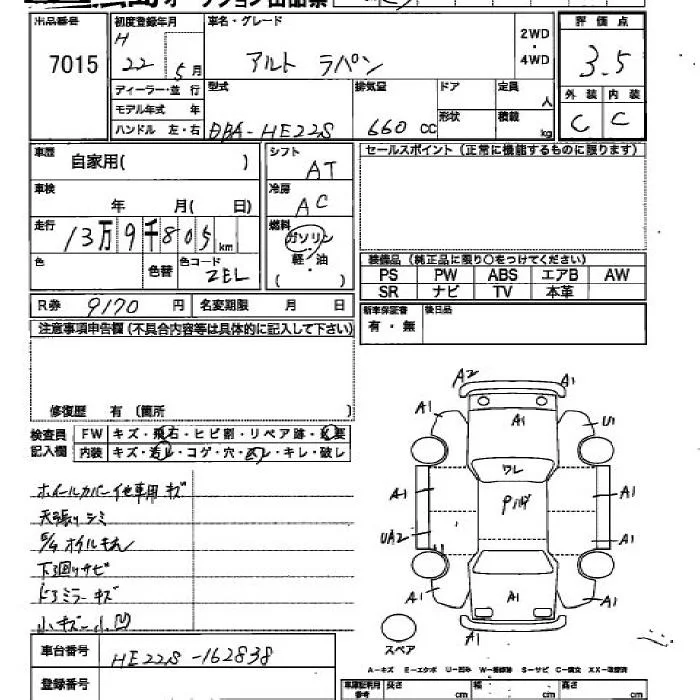 出品番号 初度登録年月 車名・グレード 2WD・4WD 評価点
7015 H 22 5月 アルト ラパン 3.5
ディーラー・並行 型式 排気量 ドア 定員 人 外装 内装
モデル年式 年 形状 積載 kg
ハンドル 左・右 DBA-HE22S 660 cc C C
車歴 自家用( ) シフト AT
セールスポイント (正常に機能するものに限ります)
車検 年 月( 日) 冷房 AC
走行 13万9千805km 燃料 ガソリン 軽・油 ( )
色 色替 色コード ZEL
装備品 (純正品に限り○をつけてください)
PS PW ABS エアB AW
SR ナビ TV 本革
R券 9170 円 名変期限 月 日
新車保証書 有・無 後日品
注意事項申告欄 (不具合内容等は具体的に記入して下さい)
修復歴 有 (箇所 )
検査員 FW キズ・飛石・ヒビ割・リペア跡・
記入欄 内装 キズ・汚レ・コゲ・穴・ ・キレ・破レ
ホイールカバー 他車用 キズ
天張り シミ
下廻りサビ
ドアミラー キズ
小キズ 小凹
A2 A1
A1 A1 U1
ワレ
A1 A1
UA2 A1
A1 A1 A1
A1
スペア
A-キズ E-エクボ U-凹み S-サビ
車台番号 HE22S-162838
登録番号
長さ cm 幅 cm 高さ cm